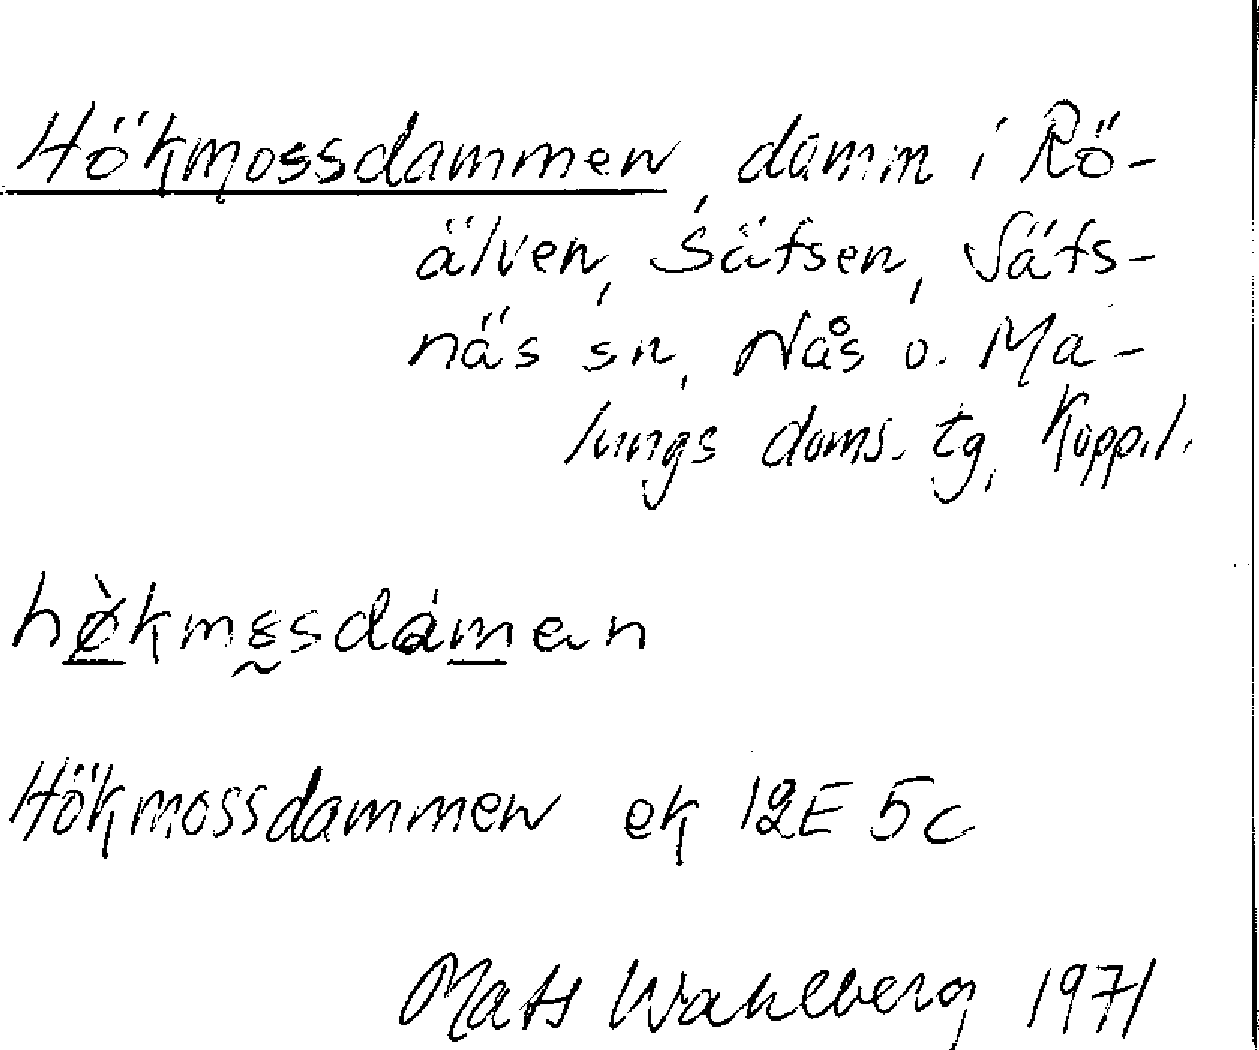 Hökmossdammen, damm i Rö-
älven, Säfsen, Säfs-
näs sn, Nås o. Ma-
lungs doms. tg, Kopp.l.
Hökmossdammen ek 12E 5c
Mats Wahlberg 1971